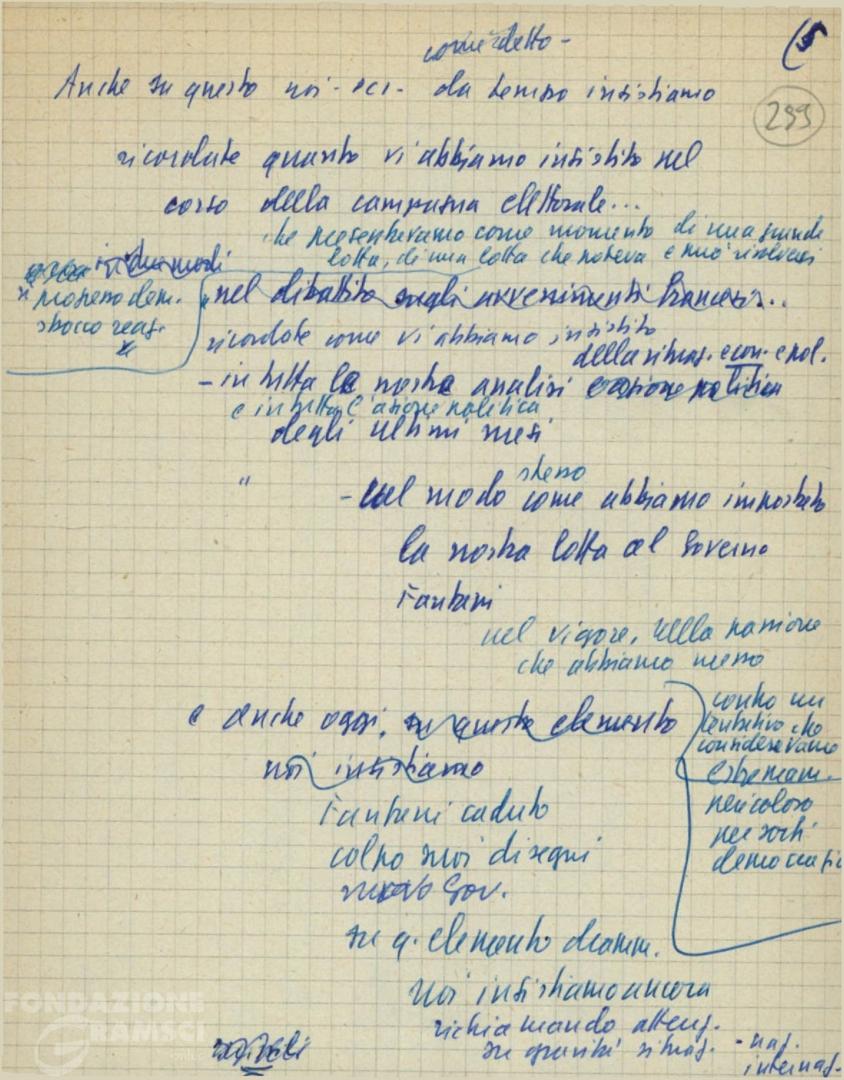 come detto -
(5
Anche su questo noi - ecc. - da tempo insistiamo
299
ricordate quanto vi abbiamo insistito nel
corso della campagna elettorale...
che presentavamo come momento di una grande
lotta, di una lotta che poteva e può risolversi
in due modi
x progresso dem.
sbocco reaz.
x
nel dibattito sugli avvenimenti francesi...
ricordate come vi abbiamo insistito
della situaz. econ. e pol.
- in tutta la nostra analisi e azione politica
e in tutta l'azione politica
degli ultimi mesi
"
- nel modo stesso come abbiamo impostato
la nostra lotta al Governo
Fanfani
nel vigore, nella passione
che abbiamo messo
contro un
tentativo che
consideravamo
estremam.
pericoloso
per sorti
democratic
e anche oggi, su questo elemento
noi insistiamo
Fanfani caduto
colpo suoi disegni
nuovo Gov.
su q. elemento dramm.
noi insistiamo ancora
richiamando attenz.
su gravità situaz. - naz.
internaz.
FONDAZIONE
GRAMSCI